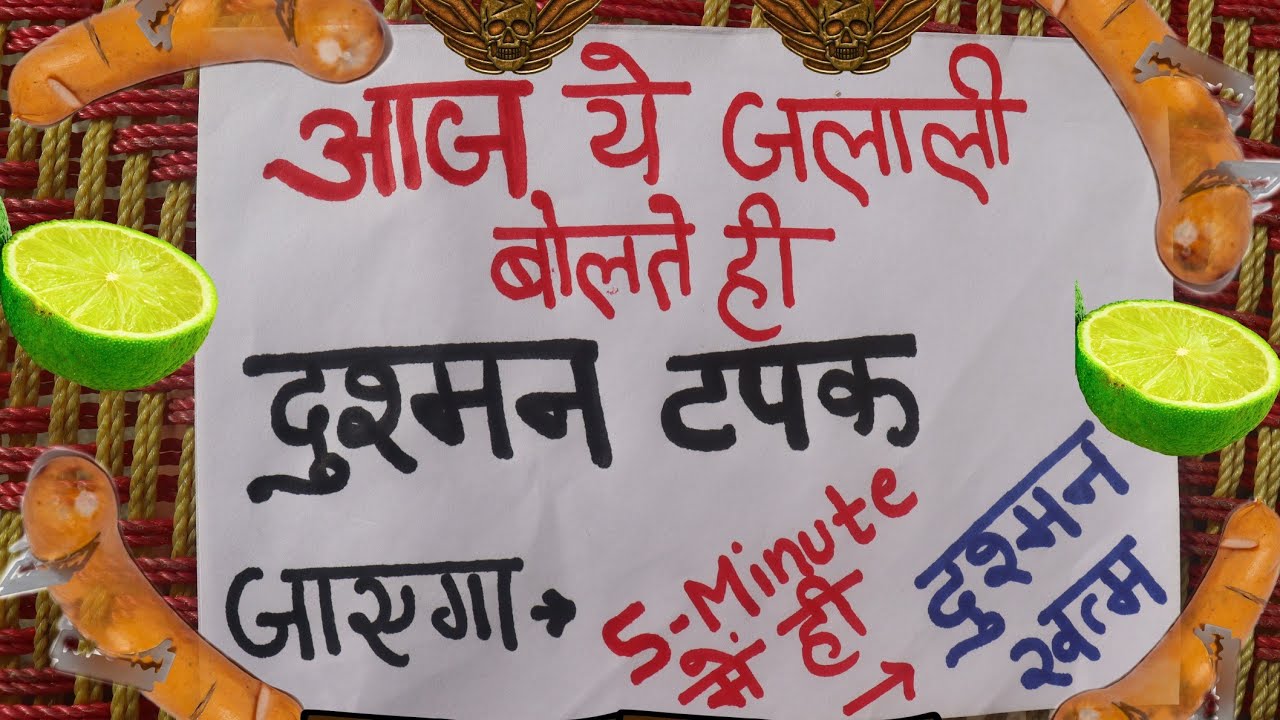 आज ये जलाली
बोलते ही
दुश्मन टपक
जाएगा →
5-Minute
में ही →
दुश्मन
खत्म